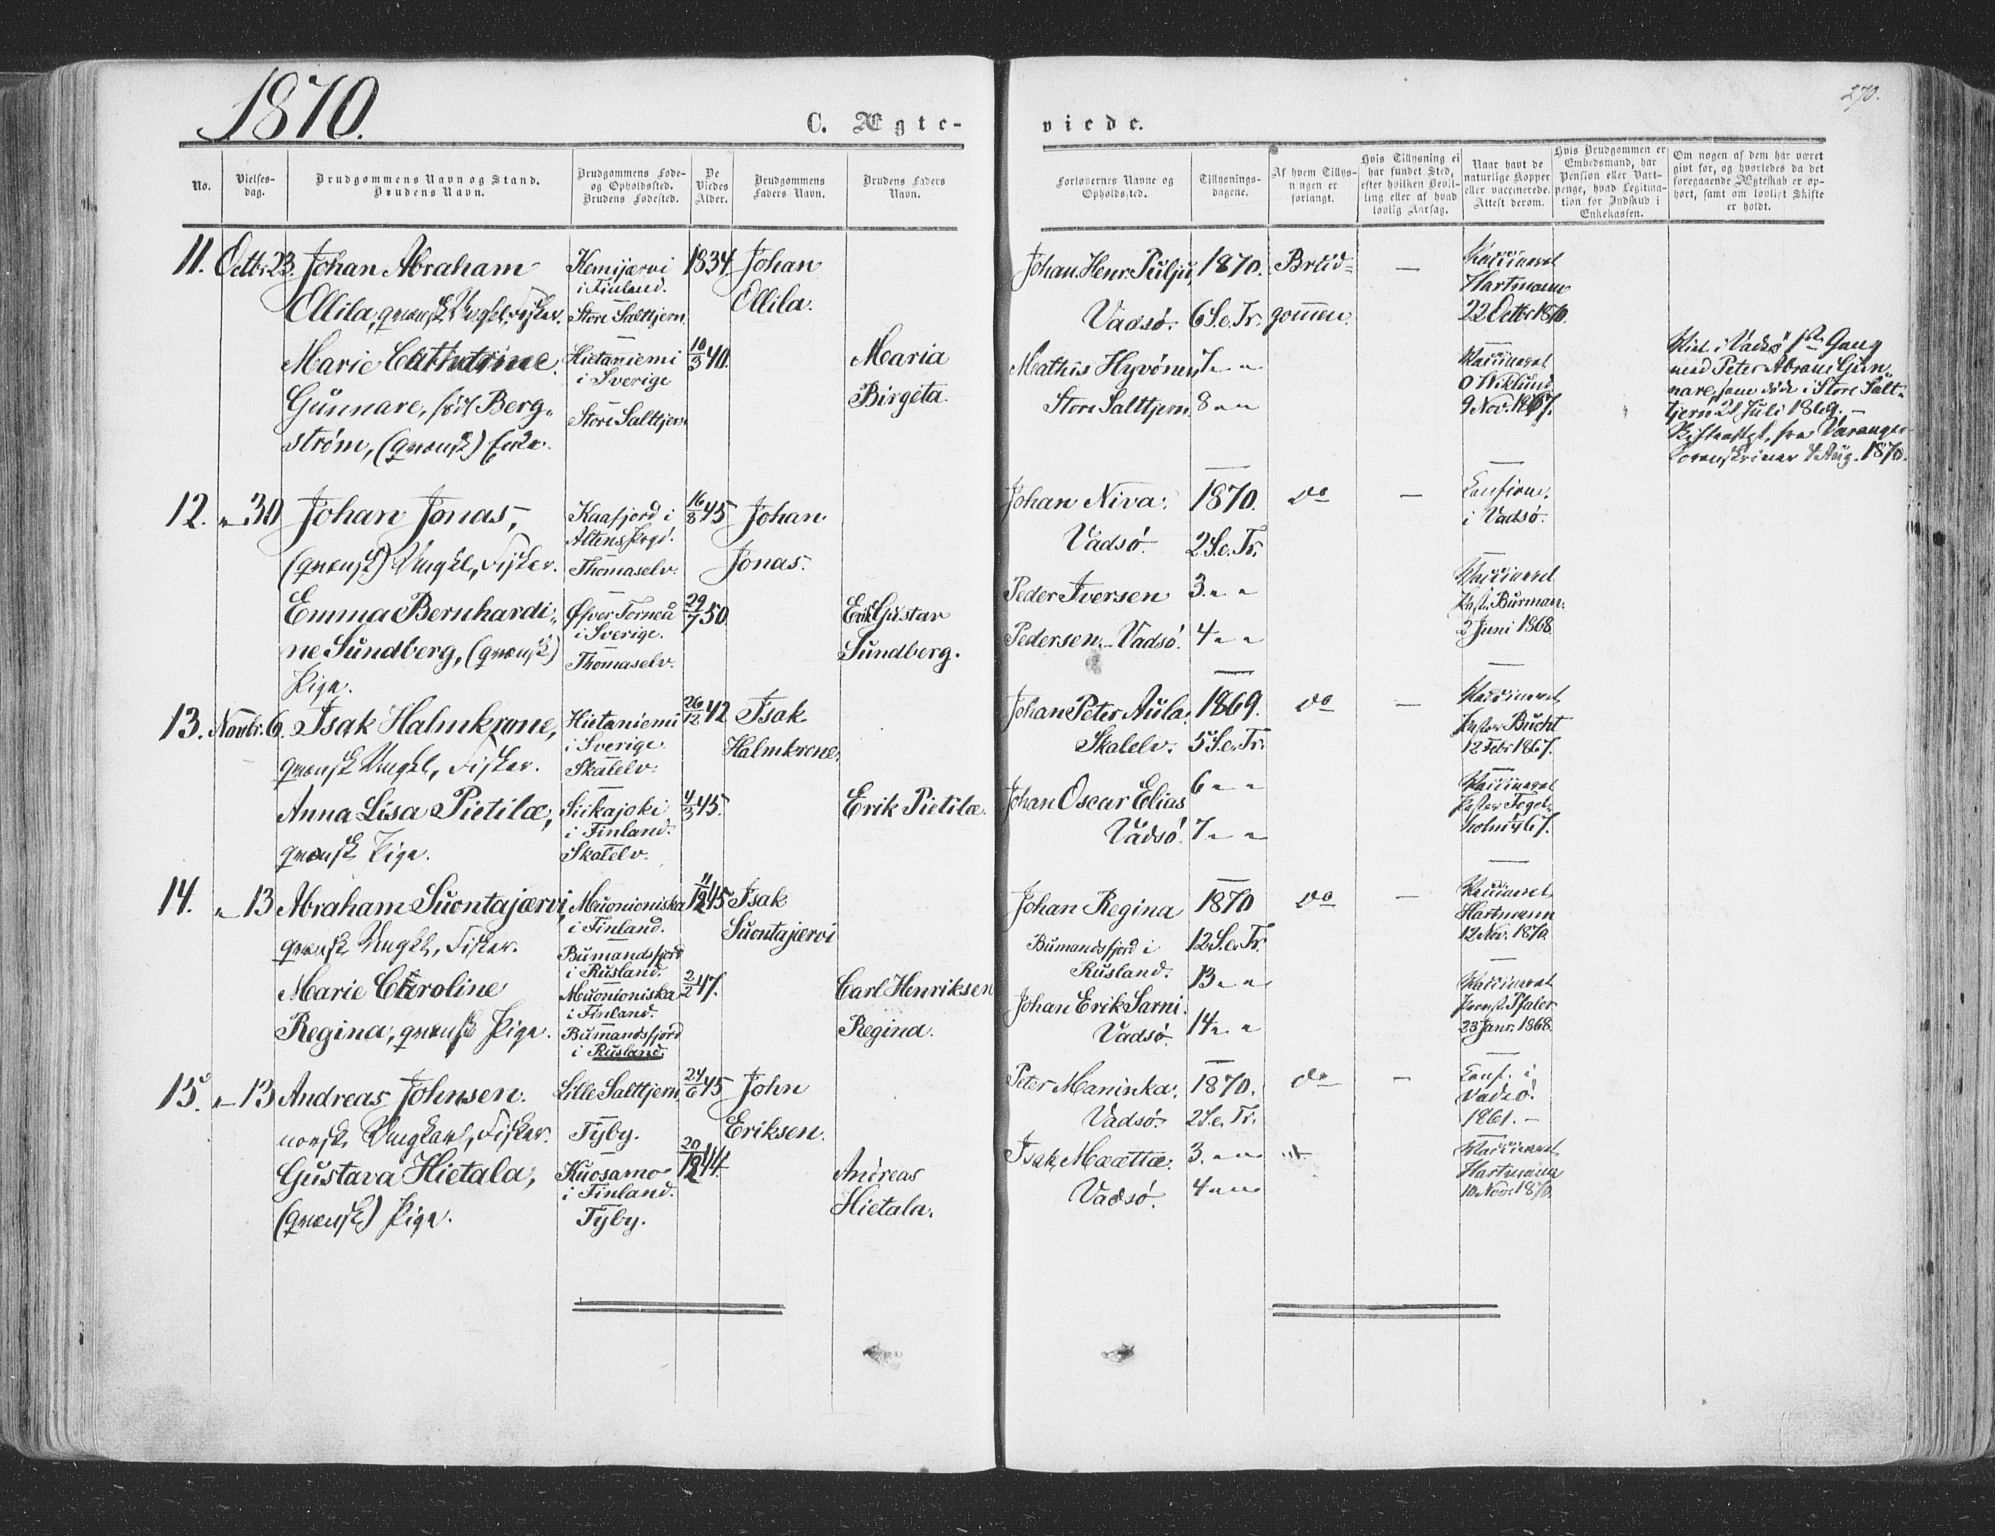 1870.
270.
C. Ægte-
viede.
No.
Vielses-
dag.
Brudgommens Navn og Stand.
Brudens Navn.
Brudgommens Føde-
og Opholdssted.
Brudens Fødested.
De
Viedes
Alder.
Brudgommens
Faders Navn.
Brudens Faders
Navn.
Forlovernes Navne og
Opholdssted.
Tillysnings-
dagene.
Af hvem Tillys-
ningen er
forlangt.
Hvis Tillysning ei
har fundet Sted,
efter hvilken Bevil-
ling eller af hvad
lovlig Aarsag.
Naar havt de
naturlige Kopper
eller vaccinerede.
Attest derom.
Hvis Brudgommen er
Embedsmand, har
Pension eller Vart-
penge, hvad Legitima-
tion for Indskud i
Enkekassen.
Om nogen af dem har været
gift før, og hvorledes da det
foregaaende Ægteskab er op-
hørt, samt om lovligt Skifte
er holdt.
11. Octbr. 23. Johan Abraham
Ollila, qvænsk Ungkl, Fisker.
Kemijærvi
i Finland.
Store Salttjern.
1834
Johan
Ollila.
Johan Henr. Pulju,
Vadsø.
1870.
6 S. e. Tr.
Brud-
gommen.
—
Vaccineret
Hartmann
22 Octbr 1870.
Marie Cathrine
Gunnare, født Berg-
strøm, (qvænsk) Enke.
Hietaniemi
i Sverige
Store Salttjern
10/3 40.
Maria
Birgeta.
Mathis Hyvønen,
Store Salttjern.
7 " "
8 " "
Vaccineret
O Wiklund
9 Nov. 1867.
Viet i Vadsø 1ste Gang
med Peter Abram Gun-
nare, som døde i Store Salt-
tjern 21 Juli 1869. —
Skifteattest fra Varanger
Sorenskriver 4 Aug. 1870.
12. " 30 Johan Jonas,
(qvænsk) Ungkl, Fisker.
Kaafjord i
Altens Prgd.
Thomaselv.
16/8 45
Johan
Jonas.
Johan Niva.
Vadsø.
1870.
2 S. e. Tr.
do
—
Confirm.
i Vadsø.
Emma Bernhardi-
ne Sundberg, (qvænsk)
Pige.
Øfver Torneå
i Sverige.
Thomaselv.
29/7 50
Erik Gustav
Sundberg.
Peder Iversen
Pedersen. Vadsø.
3. " "
4 " "
Vaccineret
Past. Burman.
2 Juni 1868.
13. Novbr. 6. Isak Halmkrone,
qvænsk Ungkl, Fisker.
Hietaniemi
i Sverige.
Skalelv.
26/12 42
Isak
Halmkrone.
Johan Peter Aula.
Skalelv.
1869.
5 S. e. Tr.
do
—
Vaccineret
Pastor Bucht
12 Febr 1867.
Anna Lisa Pietilæ,
qvænsk Pige.
Siikajoki
i Finland.
Skalelv.
4/3 45.
Erik Pietilæ.
Johan Oscar Elias
Vadsø.
6 " "
7. " "
Vaccineret
Pastor Fogel-
holm 67.
14. " 13 Abraham Suontajærvi
qvænsk Ungkl, Fisker.
Muonioniska
i Finland.
Bumandsfjord
i Rusland.
4/12 45
Isak
Suontajervi
Johan Regina
Bumandsfjord i
Rusland.
1870
12 S. e. Tr.
do
—
Vaccineret
Hartmann
12 Nov. 1870
Marie Caroline
Regina, qvænsk Pige.
Muonioniska
i Finland.
Bumandsfjord
i Rusland.
2/2 47.
Carl Henriksen
Regina.
Johan Erik Sarni.
Vadsø.
13 " "
14 " "
Vaccineret
Provst Pfaler
23 Janr. 1868.
15. " 13 Andreas Johnsen.
norsk Ungkarl, Fisker.
Lille Salttjern
Tyby.
24/6 45
John
Eriksen.
Peter Maninka.
Vadsø.
1870.
2 S. e. Tr.
do
—
Conf. i
Vadsø
1861. —
Gustava Hietala,
(qvænsk) Pige.
Kuosamo
i Finland.
Tyby.
20/12 44.
Andreas
Hietala.
Isak Mæættæ.
Vadsø.
3. " "
4 " "
Vaccineret
Hartmann
10 Nov. 1870.